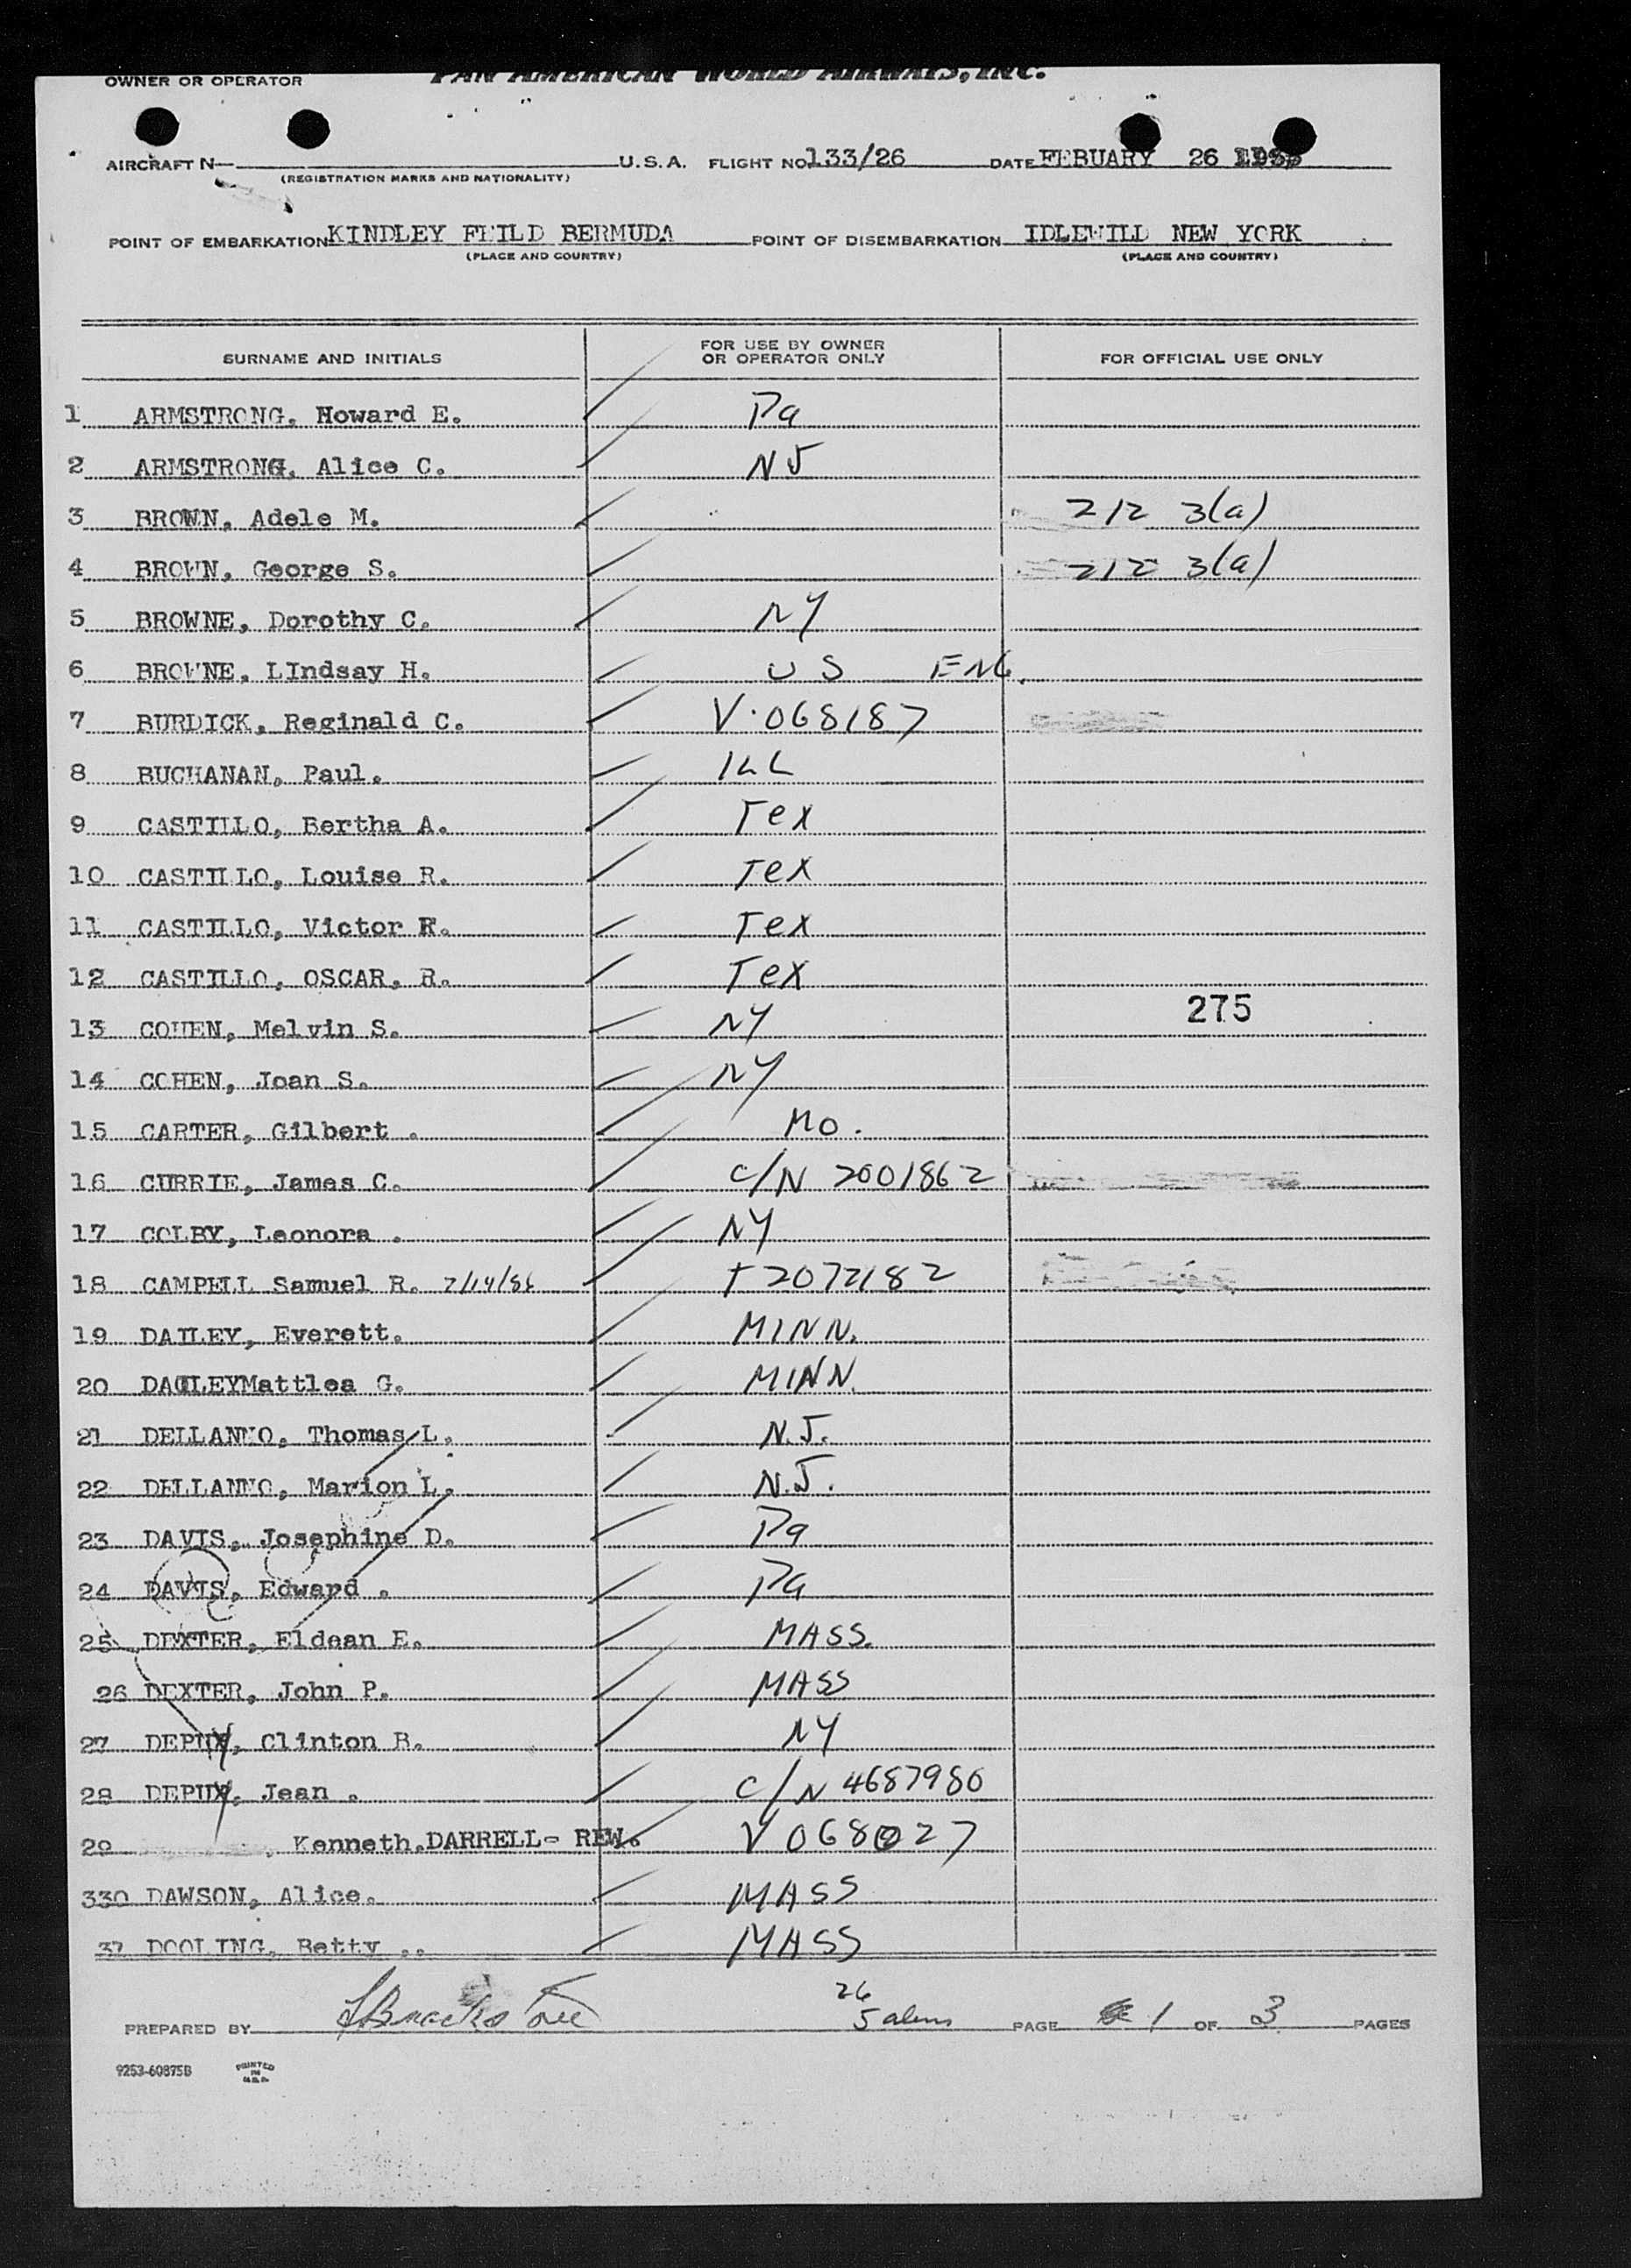 OWNER OR OPERATOR PAN AMERICAN WORLD AIRWAYS, INC.
AIRCRAFT N— U.S.A. FLIGHT NO. 133/26 DATE FEBUARY 26
(REGISTRATION MARKS AND NATIONALITY)
POINT OF EMBARKATION KINDLEY FEILD BERMUDA POINT OF DISEMBARKATION IDLEWILD NEW YORK
(PLACE AND COUNTRY) (PLACE AND COUNTRY)
SURNAME AND INITIALS FOR USE BY OWNER OR OPERATOR ONLY FOR OFFICIAL USE ONLY
1 ARMSTRONG, Howard E. Pa
2 ARMSTRONG, Alice C. NJ
3 BROWN, Adele M. 212 3(a)
4 BROWN, George S. 212 3(a)
5 BROWNE, Dorothy C. NY
6 BROWNE, LIndsay H. US ENG.
7 BURDICK, Reginald C. V.068187
8 BUCHANAN, Paul. ILL
9 CASTILLO, Bertha A. Tex
10 CASTILLO, Louise R. Tex
11 CASTILLO, Victor R. Tex
12 CASTILLO, OSCAR, R. Tex
275
13 COHEN, Melvin S. NY
14 COHEN, Joan S. NY
15 CARTER, Gilbert . Mo.
16 CURRIE, James C. C/N 2001862
17 COLBY, Leonora . NY
18 CAMPELL Samuel R. T2072182
19 DAILEY, Everett. MINN.
20 DAILEYMattlea G. MINN.
21 DELLANNO, Thomas L. N.J.
22 DELLANNO, Marion L. N.J.
23 DAVIS, Josephine D. Pa
24 DAVIS, Edward . Pa
25 DEXTER, Eldean E. MASS.
26 DEXTER, John P. MASS
27 DEPUY, Clinton B. NY
28 DEPUY, Jean . C/N 4687980
29 , Kenneth.DARRELL- REW. V 068027
330 DAWSON, Alice. MASS
37 DOOLING, Betty .. MASS
26
PREPARED BY 5 alens PAGE 1 OF 3 PAGES
9253-60875B PRINTED IN U.S.A.